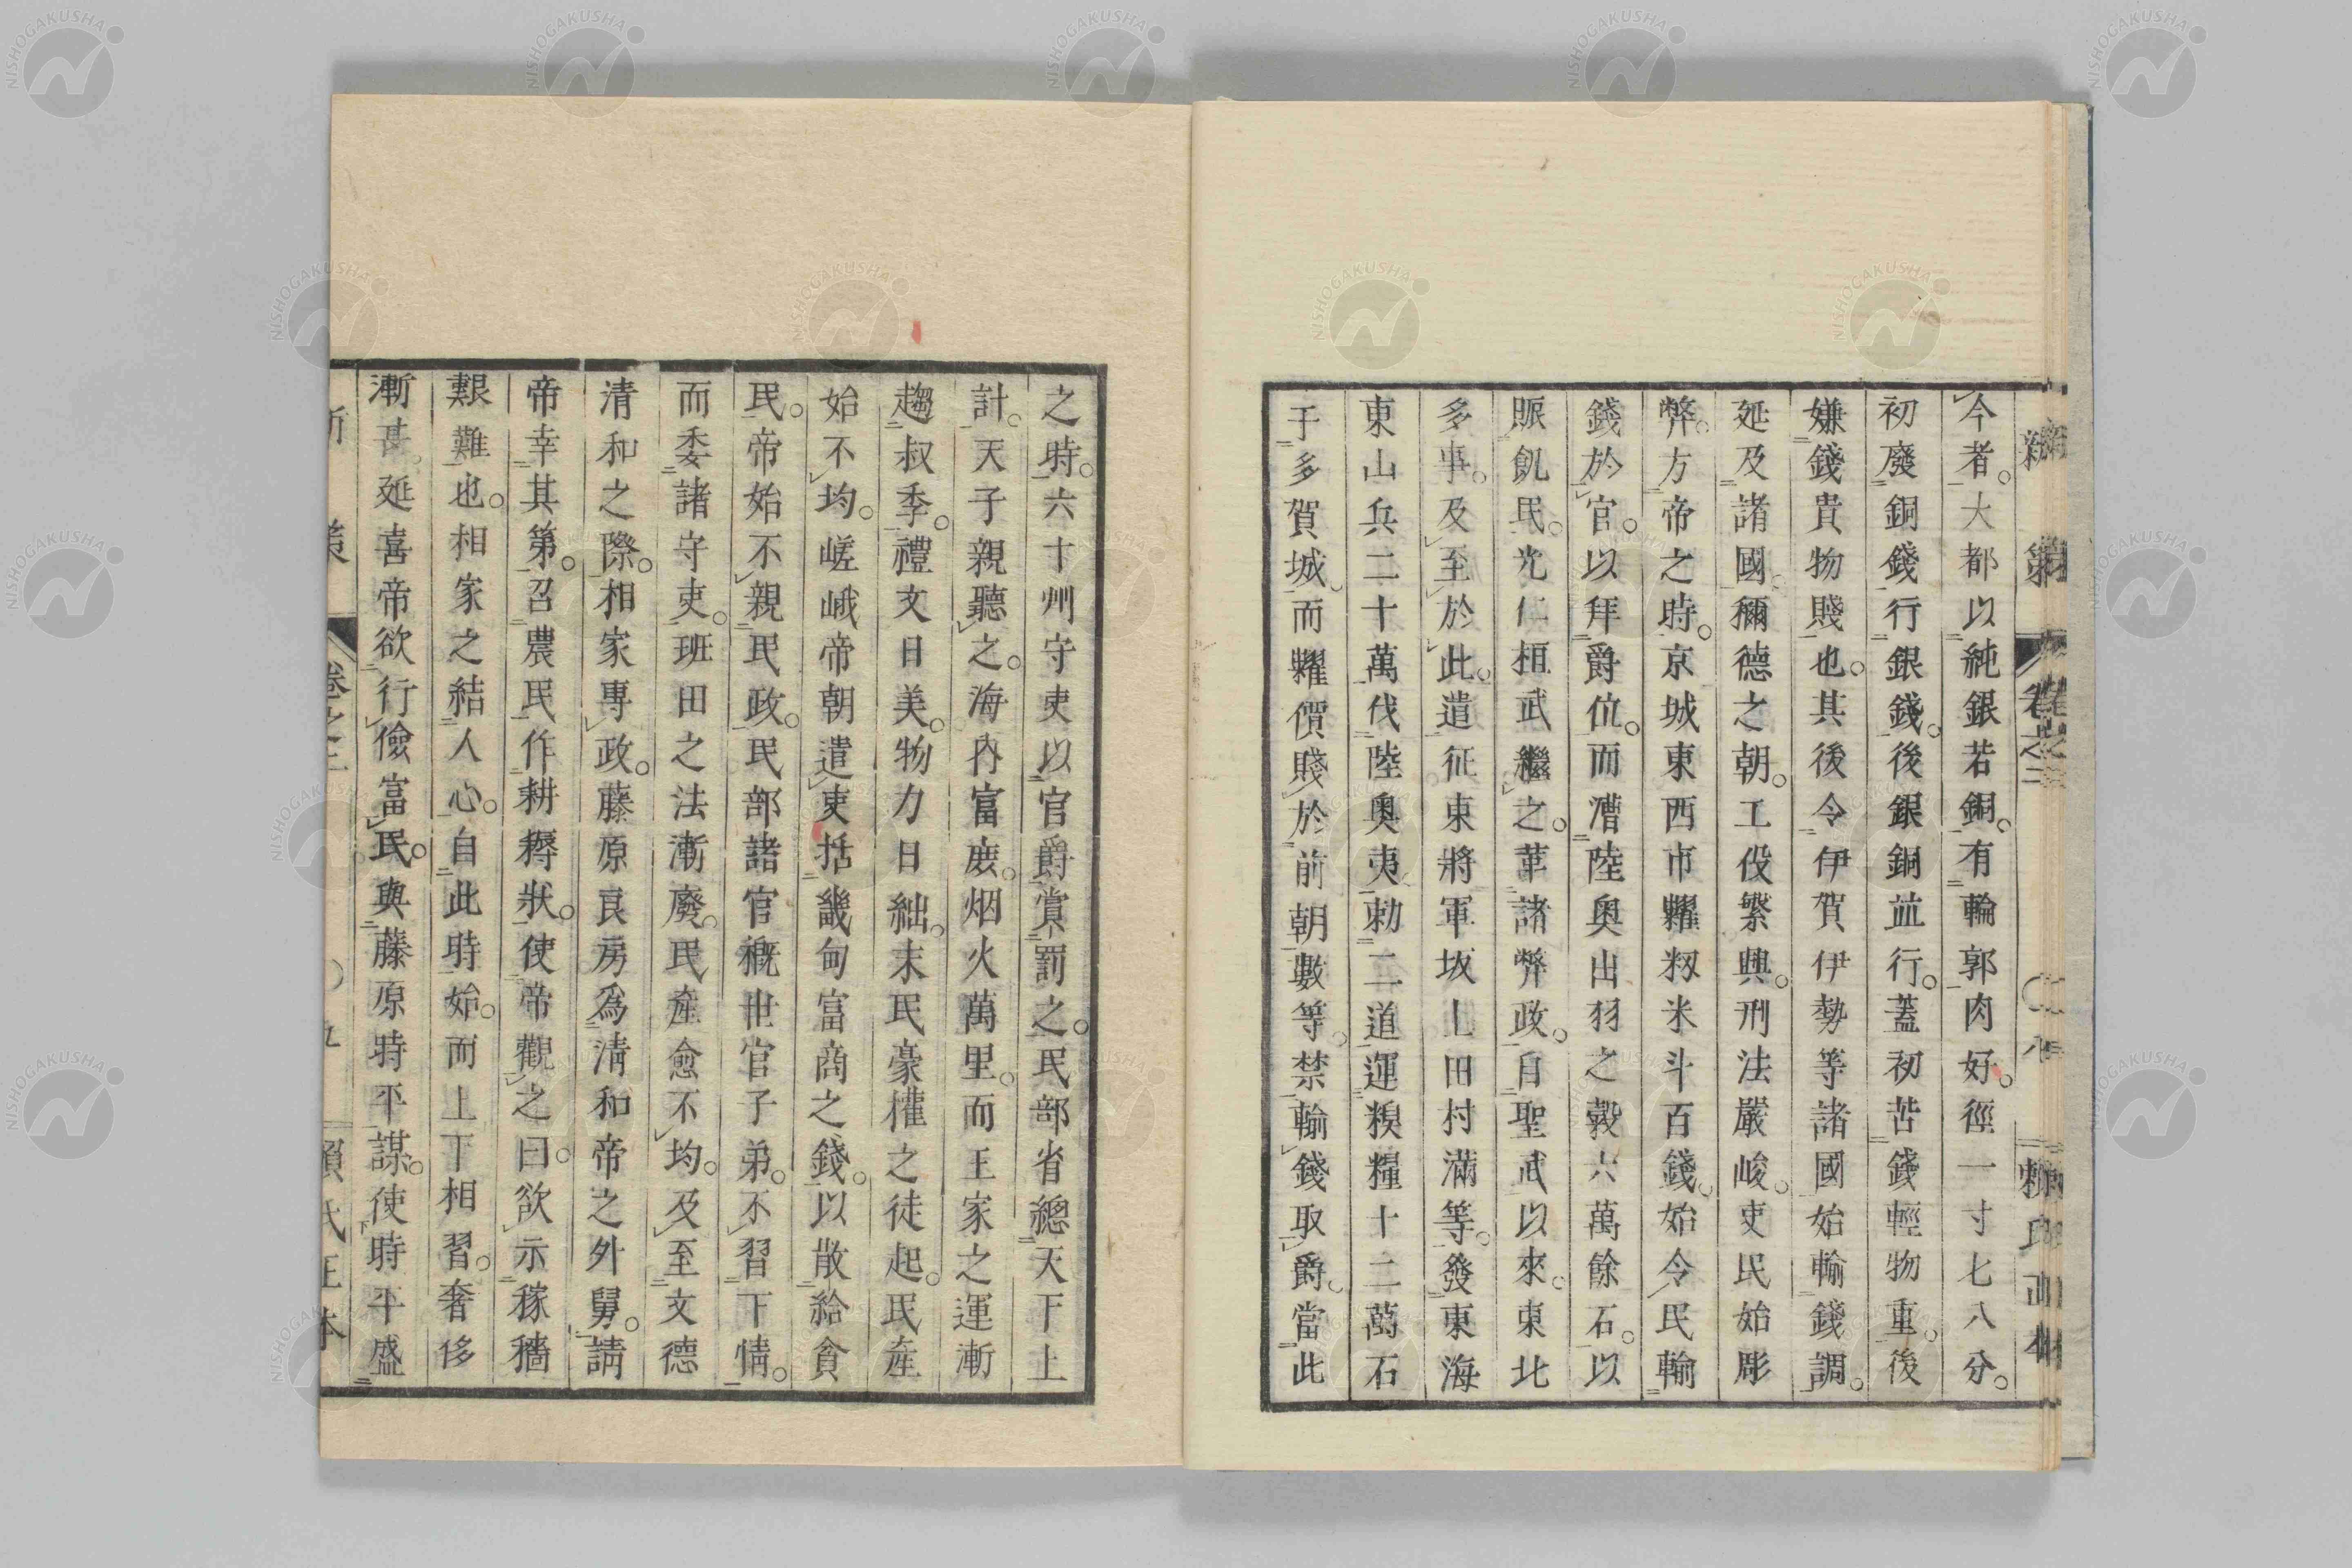 今者。大都以純銀若銅。有輪郭肉好。徑一寸七八分。
初廢銅錢行銀錢。後銀銅並行。蓋初苦錢輕物重。後
嫌錢貴物賤也。其後令伊賀伊勢等諸國始輸錢調。
延及諸國。稱德之朝。工役繁興。刑法嚴峻。吏民始彫
弊。方帝之時。京城東西市糶籾米斗百錢。始令民輸
錢於官。以拜爵位。而漕陸奧出羽之穀六萬餘石。以
賑飢民。光仁桓武繼之。革諸弊政。自聖武以來。東北
多事。及至於此。遣征東將軍坂上田村滿等。發東海
東山兵二十萬伐陸奧夷。勅二道運糗糧十二萬石
于多賀城。而糶價賤於前朝數等。禁輸錢取爵。當此
之時。六十州守吏以官爵賞罰之。民部省總天下上
計。天子親聽之。海內富庶。烟火萬里。而王家之運漸
趨叔季。禮文日美。物力日絀。末民豪權之徒起。民產
始不均。嵯峨帝朝遣吏括畿甸富商之錢。以散給貧
民。帝始不親民政。民部諸官概世官子弟。不習下情。
而委諸守吏。班田之法漸廢。民產愈不均。及至文德
清和之際。相家專政。藤原良房為清和帝之外舅。請
帝幸其第。召農民作耕耨狀。使帝觀之。曰。欲示稼穡
艱難也。相家之結人心。自此時始。而上下相習。奢侈
漸甚。延喜帝欲行儉富民。與藤原時平謀。使時平盛
卷之二
九
賴氏正本